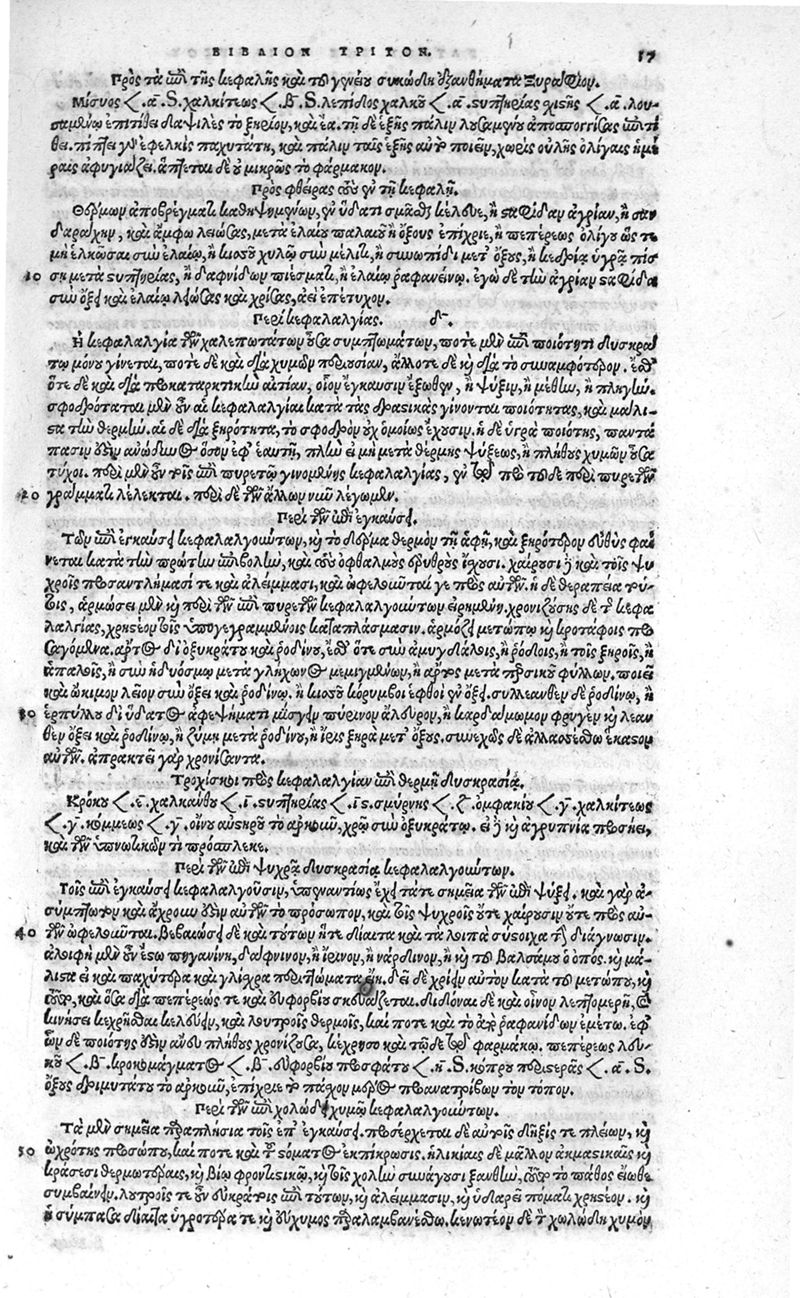 ΒΙΒΛΙΟΝ ΤΡΙΤΟΝ. 17
Πρὸς τὰ ἐπὶ τῆς κεφαλῆς καὶ τοῦ γενείου συκώδη ἐξανθήματα Ξηρὰ φλου.
Μίσυος <. α. S. χαλκίτεως <. β. S. λεπίδος χαλκοῦ <. α. στυπτηρίας σχιστῆς <. α. λου-
σαμένῳ ἐπιτίθει δαψιλὲς τὸ ξηρίον, καὶ ἔα. τῇ δὲ ἑξῆς πάλιν λουσαμένου ἀποσπογγίσας ἐπιτί
θει. πήγει γὰρ ἐφελκὶς παχυτάτη, καὶ πάλιν ταῖς ἑξῆς αὐτὸ ποιεῖν, χωρὶς οὐλῆς ὀλίγαις ἡμέ
ραις ἀφυγιάζει. ἅπτεται δὲ οὐ μικρῶς τὸ φάρμακον.
Πρὸς φθεῖρας τοὺς ἐν τῇ κεφαλῇ.
Θέρμων ἀποβρέγματι καθηψημένων, ἐν ὕδατι σμᾶσθαι κέλευε, ἢ σταφίδαν ἀγρίαν, ἢ σαν
δαράχην, καὶ ἄμφω λειώσας, μετὰ ἐλαίου παλαιοῦ ἢ ὄξους ἐπίχριε, ἢ πεπέρεως ὀλίγου ὥς τε
μὴ ἑλκῶσαι σὺν ἐλαίῳ, ἢ κισσοῦ χυλῷ σὺν μέλιτι, ἢ σινώπιδι μετ' ὄξους, ἢ κεδρίᾳ ὑγρᾷ πίσ
10 σῃ μετὰ στυπτηρίας, ἢ δαφνίδων πιέσματι, ἢ ἐλαίῳ ῥαφανείνῳ. ἐγὼ δὲ τὴν ἀγρίαν σταφίδα
σὺν ὄξει καὶ ἐλαίῳ λειώσας καὶ χρίσας, ἀεὶ ἐπέτυχον.
Περὶ κεφαλαλγίας. δ.
Η κεφαλαλγία τῶν χαλεπωτάτων οὖσα συμπτωμάτων, ποτὲ μὲν ἐπὶ ποιότητι δυσκρά
τῳ μόνου γίνεται, ποτὲ δὲ καὶ διὰ χυμῶν περιουσίαν, ἄλλοτε δὲ καὶ διὰ τὸ συναμφότερον. ἔσθ'
ὅτε δὲ καὶ διὰ προκαταρκτικὴν αἰτίαν, οἷον ἔγκαυσιν ἔξωθεν, ἢ ψύξιν, ἢ μέθην, ἢ πληγήν.
σφοδρόταται μὲν οὖν αἱ κεφαλαλγίαι κατὰ τὰς δραστικὰς γίνονται ποιότητας, καὶ μάλι-
στα τὴν θερμήν. αἱ δὲ διὰ ξηρότητα, τὸ σφοδρὸν οὐχ ὁμοίως ἔχουσιν. ἡ δὲ ὑγρὰ ποιότης, παντά
πασιν οὖσιν ἀνώδυνος ὅσον ἐφ' ἑαυτῇ, πλὴν εἰ μὴ μετὰ θερμῆς ψύξεως, ἢ πλήθους χυμῶν οὖσα
τύχοι. περὶ μὲν οὖν τῆς ἐπὶ πυρετῷ γινομένης κεφαλαλγίας, ἐν τῷ πρὸ τοῦδε περὶ πυρετῶν
20 γράμματι λέλεκται. περὶ δὲ τῶν ἄλλων νῦν λέγωμεν.
Περὶ τῶν ἐπὶ ἐγκαύσει.
Τῶν ἐπὶ ἐγκαύσει κεφαλαλγούντων, καὶ τὸ δέρμα θερμὸν τῇ ἁφῇ, καὶ ξηρότερον εὐθὺς φαί
νεται κατὰ τὴν πρώτην ἐπιβολὴν, καὶ τοὺς ὀφθαλμοὺς ἐρυθροὺς ἔχουσι. χαίρουσι δὲ καὶ τοῖς ψυ
χροῖς προσαντλήμασί τε καὶ ἀλείμμασι, καὶ ὠφελοῦνταί γε πρὸς αὐτῶν. ἡ δὲ θεραπεία τού-
τοις, ἁρμόσει μὲν καὶ περὶ τῶν ἐπὶ πυρετῶν κεφαλαλγούντων εἰρημένη. χρονιζούσης δὲ τῆς κεφα
λαλγίας, χρηστέον τοῖς ὑπογεγραμμένοις καταπλάσμασιν. ἁρμόζει μετώπῳ καὶ κροτάφοις προ
σαγόμενα. ἄρτος δι' ὀξυκράτου καὶ ῥοδίνου, ἔσθ' ὅτε σὺν ἀμυγδάλοις, ἢ ῥόδοις, ἢ τοῖς ξηροῖς, ἢ
ἁπαλοῖς, ἢ σὺν ἡδυόσμῳ μετὰ γλήχωνος μεμιγμένων, ἢ ἄρτος μετὰ περσικοῦ φύλλων. ποιεῖ
καὶ ὤκιμον λεῖον σὺν ὄξει καὶ ῥοδίνῳ. ἢ κισσοῦ κόρυμβοι ἑφθοὶ ἐν ὄξει. συλλεανθὲν δὲ ῥοδίνῳ, ἢ
30 ἑρπύλλου δι' ὕδατος ἀφεψήματι μίσγειν πύρινον ἄλευρον, ἢ καρδάμωμον φρυγὲν καὶ λεαν
θὲν ὄξει καὶ ῥοδίνῳ, ἢ ζύμη μετὰ ῥοδίνου, ἢ ἶρις ξηρὰ μετ' ὄξους. συνεχῶς δὲ ἀλλασσέσθω ἕκαστον
αὐτῶν. ἀπρακτεῖ γὰρ χρονίζοντα.
Τροχίσκοι πρὸς κεφαλαλγίαν ἐπὶ θερμῇ δυσκρασίᾳ.
Κρόκου <. ε. χαλκάνθου <. ι. στυπτηρίας <. ις. σμύρνης <. ζ. ὀμφακίου <. γ. χαλκίτεως
<. γ. κόμμεως <. γ. οἴνου αὐστηροῦ τὸ ἀρκοῦν, χρῶ σὺν ὀξυκράτῳ. εἰ δὲ καὶ ἀγρυπνία προσῄει,
καὶ τῶν ὑπνωτικῶν τι πρόσπλεκε.
Περὶ τῶν ἐπὶ ψυχρᾷ δυσκρασίᾳ κεφαλαλγούντων.
Τοῖς ἐπὶ ἐγκαύσει κεφαλαλγοῦσιν, ὑπεναντίως ἔχει τά τε σημεῖα τῶν ἐπὶ ψύξει. καὶ γὰρ ἀ-
σύμπτωτον καὶ ἄχρουν οὖσιν αὐτῶν τὸ πρόσωπον, καὶ τοῖς ψυχροῖς οὔτε χαίρουσιν οὔτε πρὸς αὐ-
40 τῶν ὠφελοῦνται. βεβαιώσει δὲ καὶ τούτων ἥ τε δίαιτα καὶ τὰ λοιπὰ σύστοιχα τὴν διάγνωσιν.
ἀλοιφὴ μὲν οὖν ἔστω πηγανίνη, δάφνινον, ἢ ἴρινον, ἢ νάρδινον, ἢ καὶ τοῦ βαλσάμου ὁ ὀπός. καὶ μά-
λιστα εἰ καὶ παχύτερα καὶ γλίσχρα περιττώματα εἴη. δεῖ δὲ χρίειν αὐτὸν κατὰ τοῦ μετώπου, καὶ
καὶ ὅσα διὰ πεπέρεώς τε καὶ εὐφορβίου σκευάζεται. διδόναι δὲ καὶ οἶνον λεπτομερῆ,
κινήσει κεχρῆσθαι κελεύειν, καὶ λουτροῖς θερμοῖς, καί ποτε καὶ τὸ ἀπὸ ῥαφανίδων ἐμέτω. ἐφ'
ὧν δὲ ποιότης οὖσιν ἄνευ πλήθους χρονίζουσα, κέχρησο καὶ τῷδε τῷ φαρμάκῳ. πεπέρεως λευ-
κοῦ <. β. κροκομάγματος <. β. εὐφορβίου προσφάτου <. η. S. κόπρου περιστερᾶς <. α. S.
ὄξους δριμυτάτου τὸ ἀρκοῦν, ἐπίχριε τὸ πάχον μέρος προανατρίβων τὸν τόπον.
Περὶ τῶν ἐπὶ χολώδει χυμῷ κεφαλαλγούντων.
Τὰ μὲν σημεῖα παραπλήσια τοῖς ἐπ' ἐγκαύσει. προσέρχεται δὲ αὐτοῖς δῆξίς τε πλείων, καὶ
50 ὠχρότης προσώπου, καί ποτε καὶ τοῦ στόματος ἐκπίκρωσις. ἡλικίαις δὲ μᾶλλον ἀκμαστικαῖς καὶ
κράσεσι θερμοτέραις, καὶ βίῳ φροντιστικῷ, καὶ τοῖς χολὴν συνάγουσι ξανθὴν, τοῦτο τὸ πάθος εἴωθε
συμβαίνειν. λουτροῖς τε οὖν εὐκράτοις ἐπὶ τούτων, καὶ ἀλείμμασιν, καὶ ὑδαρεῖ πόματι χρηστέον. καὶ
ἡ σύμπασα δίαιτα ὑγροτέρα τε καὶ εὔχυμος παραλαμβανέσθω. κενωτέον δὲ τὸν χολώδη χυμὸν